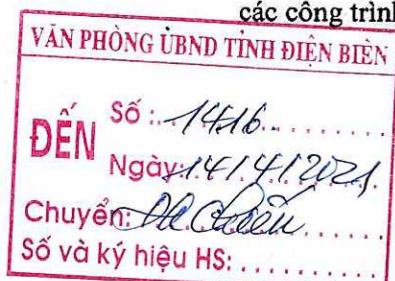 các công trình
VĂN PHÒNG ỦBND TỈNH ĐIỆN BIÊN
ĐẾN
Số : 1416
Ngày: 14/4/2021
Chuyển:
Số và ký hiệu HS: